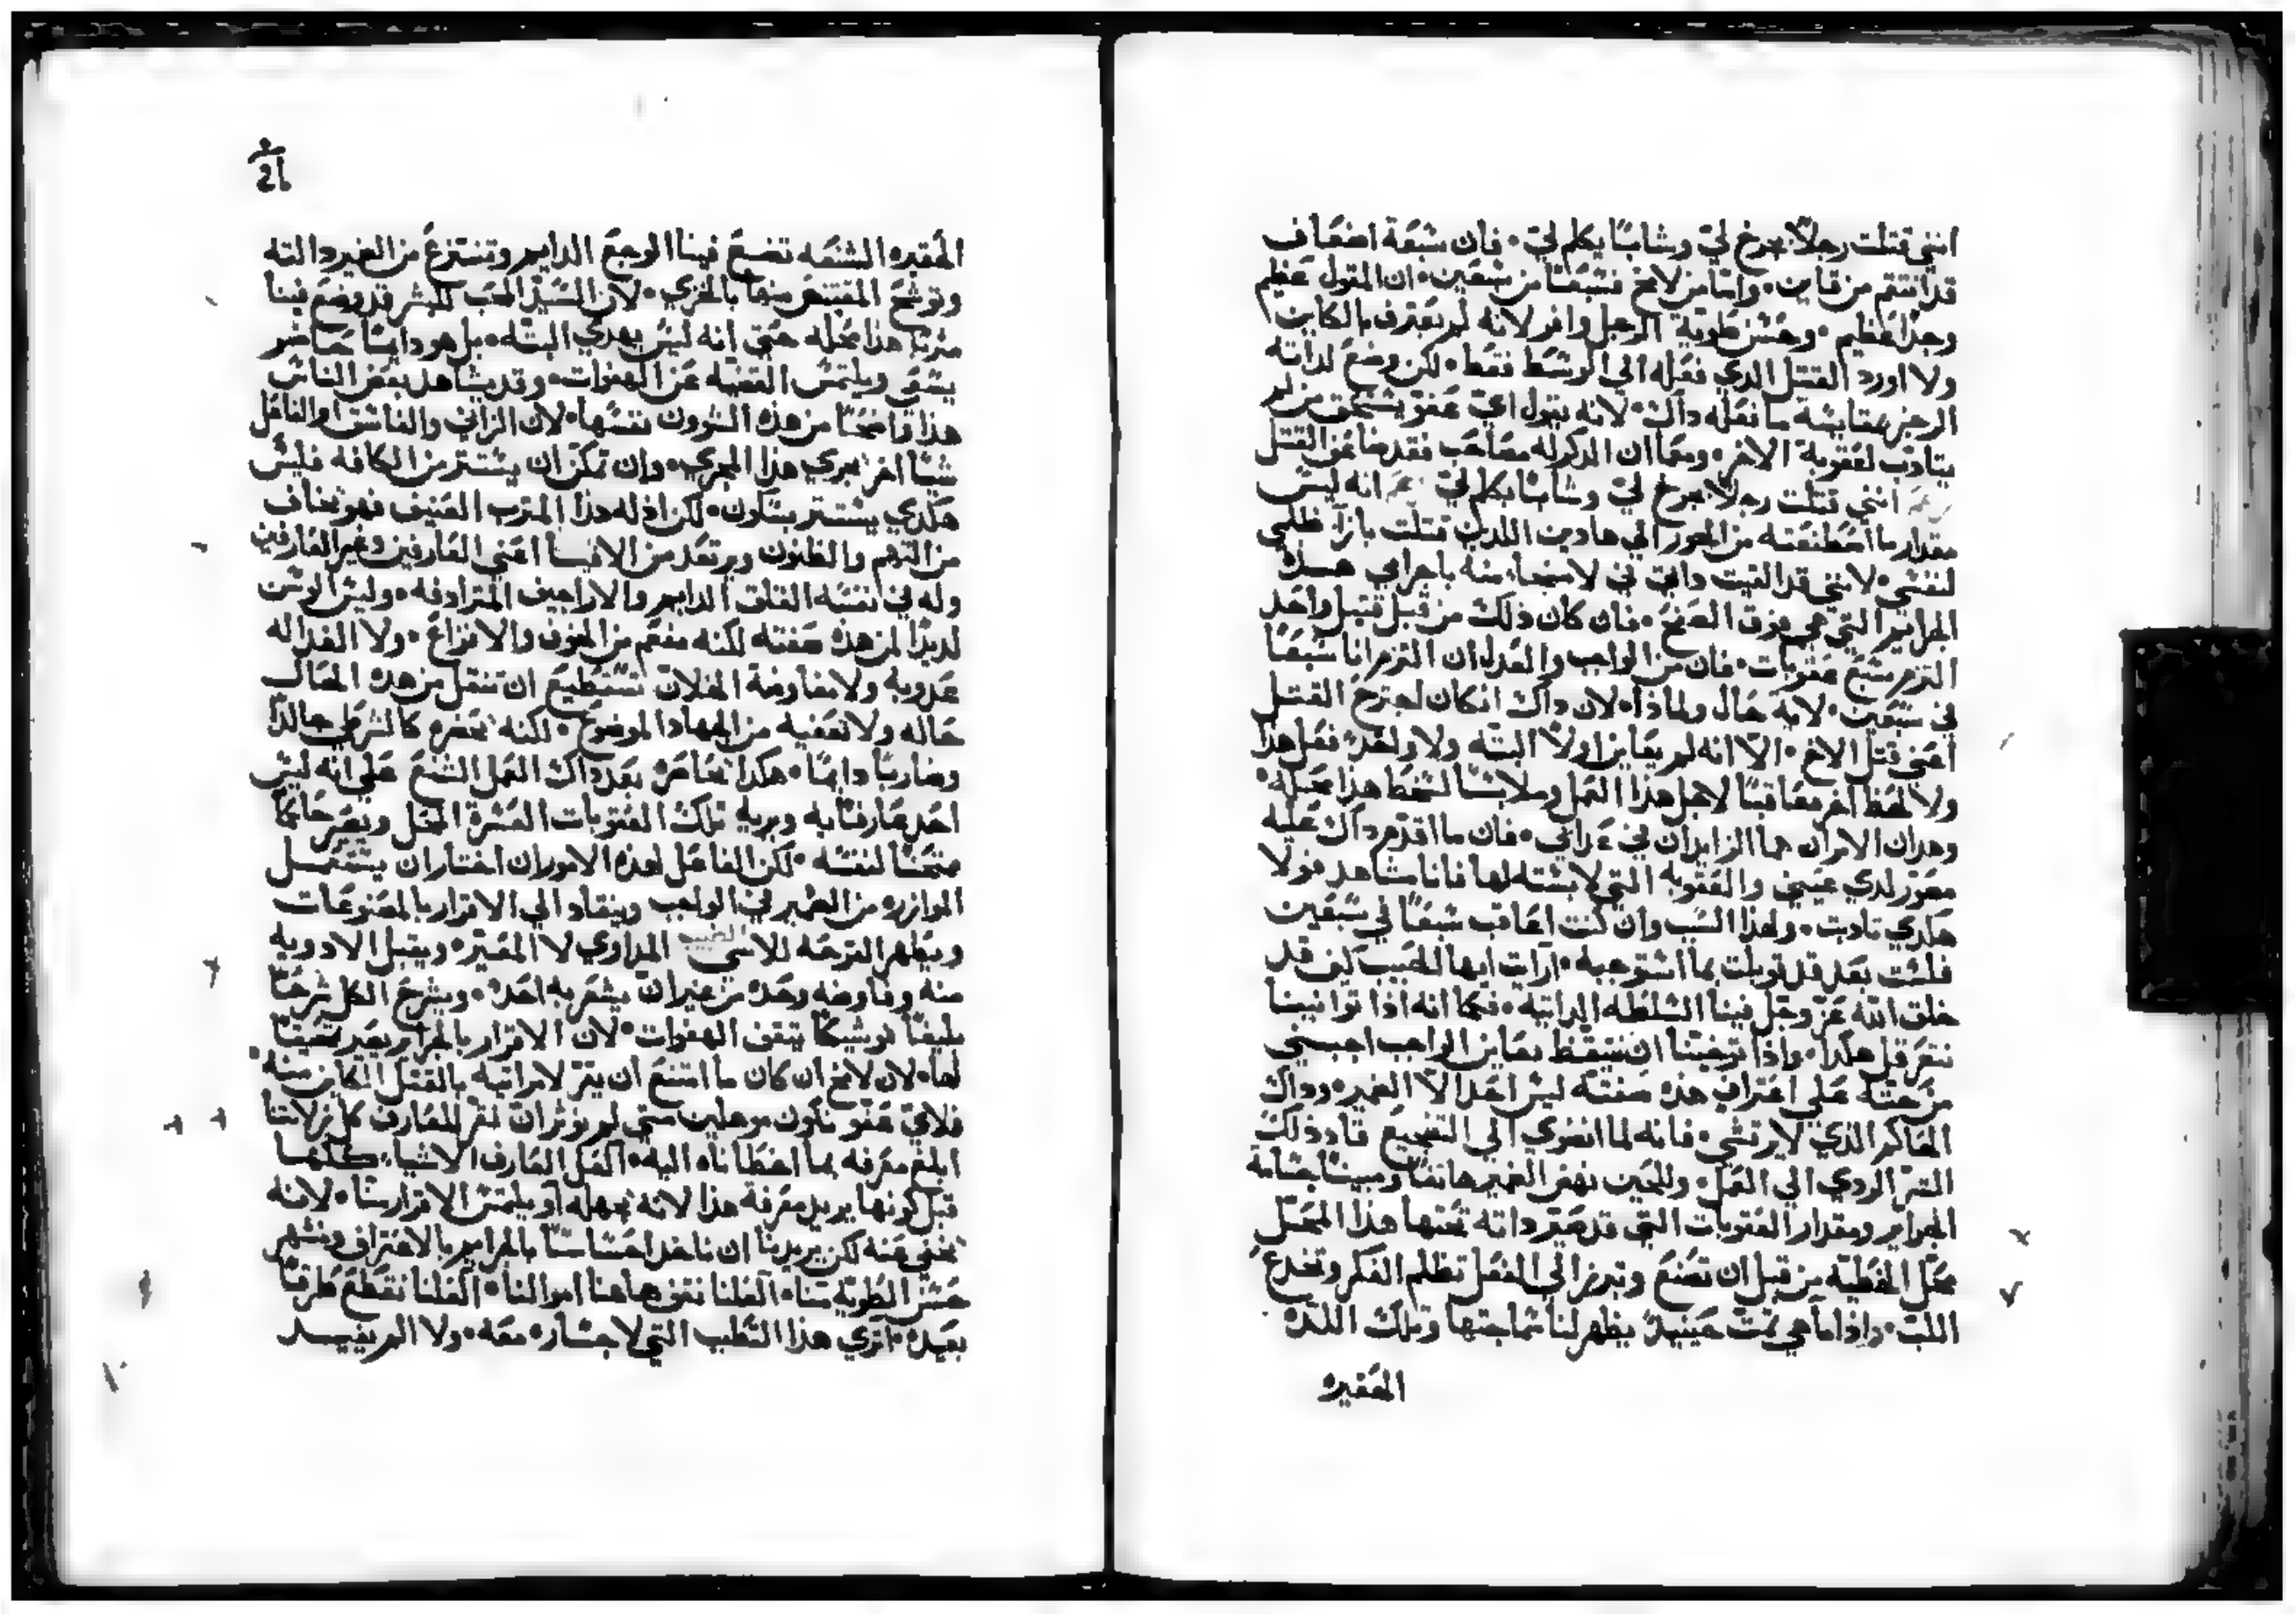 انني قتلت رجلًا بجرح لي وشابًا بكلم لي٠ فان سبعة اضعاف
قد انتقم من قاين٠ واما من لامخ فسبعًا من سبعين٠ ان القول عظيم
وجدًا عظيم٠ وحسن طوية الرجل وافر لانه لم يعترف بالكاين
ولا اورد القتل الدي فعله الي الوسط فقط٠ لكن وضع لداته
الرجز بمقايسة ما فعله داك٠ لانه يقول اي عفو يستحق من لم
يتادب لعقوبة الاخر٠ ومعما ان الدكر له مصاحب فقد ضاعف القتل
انني قتلت رجلًا بجرح لي وشابًا بكلم لي انه ليس
مقدار ما اصطنعته من الجور الي هادين اللدين قتلت بازآ ظلمي
لنفسي٠ لانني قد القيت داتي في لا منجاء منه باجرامي هده
الجرايم التي هي فوق الصفح٠ فان كان ذلك من قبل قتيل واحد
التزم سبع عقوبات٠ فان من الواجب والعدل ان التزم انا سبعًا
في سبعين٠ لاية حال ولماذا٠ لان داك انكان اجترح القتل
اعني قتل الاخ٠ الا انه لم يعاين اولًا البته ولا واحد فعل هذا
ولا لحظ اخر معاقبًا لاجل هذا العمل وملابسًا لسخط هذا محله٠
وهدان الامران هما الزايدان في عدابي٠ فان ما اقدم داك عليه
مصور لدي عيني والعقوبه التي لا يشته لها فانا مشاهد هو لا
هكدي تادبت٠ ولهذا السبب وان كنت اعاقب سبعًا في سبعين
فلست بعد قد قوبلت بما استوجبه٠ ارآيت ايها الحبيب كيف قد
خلق الله عز وجل فينا السلطه الداتيه٠ فكما انه اذا توانينا
نتعرقل هكدا٠ واذا توخينا ان نتيقظ نعاين الواجب اجبني
من حتته علي اعتراف هذه صفته ليس احدًا الا الضمير٠ وداك
الحاكم الذي لا يرتشي٠ فانه لما انضوي الي التضجيع قاد ذلك
السر الردي الي العمل٠ وللحين نهض الضمير هاتفًا ومبينًا جسامة
الجرايم ومقدار العقوبات التي قد صير داته تحتها هذا المحل
محل الخطيه من قبل ان تصنع وتبرز الي الفعل تظلم الفكر وتخدع
اللب٠ واذا ما هي تمت حينيد يظهر لنا سماجتها وتلك اللده
الحقيره

21
الحقيره الشنعه تضع فينا الوجع الدايم وتنتزع من الضمير دالته
وتوشح المقتنص منها بالخزي٠ لان السيد المحب للبشر قد وضع فينا
مثربًا هذا محله حتي انه ليس يهدي البته٠ بل هو دايمًا حاضر
يشقي ويلتمس القضيه عن الهفوات٠ وقد يشاهد بعض الناس
هذا واضحًا من هذه الشوون نفسها٠ لان الزاني والفاسق او الفاعل
شيًا اخر يجري هذا المجري٠ وان تمكن ان يستتر من الكافه فليس
هكدي يستتر بسكون٠ لكن اذ له هذا المثرب العنيف فهو يخاف
من التوهم والظنون ويرتعد من الافيا اعني العارفين وغير العارفين
وله في نفسه القلق الدايم والاراجيف المترادفه٠ وليس الوسن
لديدًا لمن هذه صفته لكنه مفعم من الخوف والانزاع٠ ولا الغدا له
عدوبة ولا مفاوضة الخلان تستطيع ان تنقل من هده الحال
حاله ولا تعفيه من الجهاد الموضوع٠ لكنه يحضره كالشرطي جالدًا
وضاربًا دايمًا٠ هكدا يحاصره بعد داك العمل الشنع علي انه ليس
احد عارفًا به ويريه تلك العقوبات العسرة الحمل ويصير حاكمًا
ممتحنًا لنفسه٠ لكن الفاعل لهذه الامور ان اختار ان يستعمل
الموازره من الضمير في الواجب وينقاد الي الاقرار بالمصنوعات
ويظهر القرحه للاسي الطبيب المداوي لا المعير٠ ويقبل الادويه
منه وفاوضه وحده من غير ان يشعر به احد٠ ويشرح الكل شرحًا
بليغًا فوشيكًا يتقف الهفوات٠ لان الاقرار بالجرايم يصير تنقيفًا
لها٠ لان لامخ ان كان ما امتنع ان يقر لامراتيه بالقتل الكاين منه٠
فلاي عفو نكون موهلين متي لم نوثر ان نقر للعارف كل زلاتنا
ابلغ معرفه بما اخطاناه اليه٠ العل العارف الاشياء كلها
قبل كونها يريد معرفة هذا لانه يجهله او يلتمس الاقرار منا٠ لانه
يخفي عنه لكن يريدنا ان ناخد احساسًا بالجرايم بالاعتراف ونشهر
حسن الطوية منا٠ العلنا ننفق هاهنا اموالنا٠ العلنا نقطع طرقًا
بعيده٠ اتري هذا التطبب التي لا خساره معه٠ ولا الم يفيد